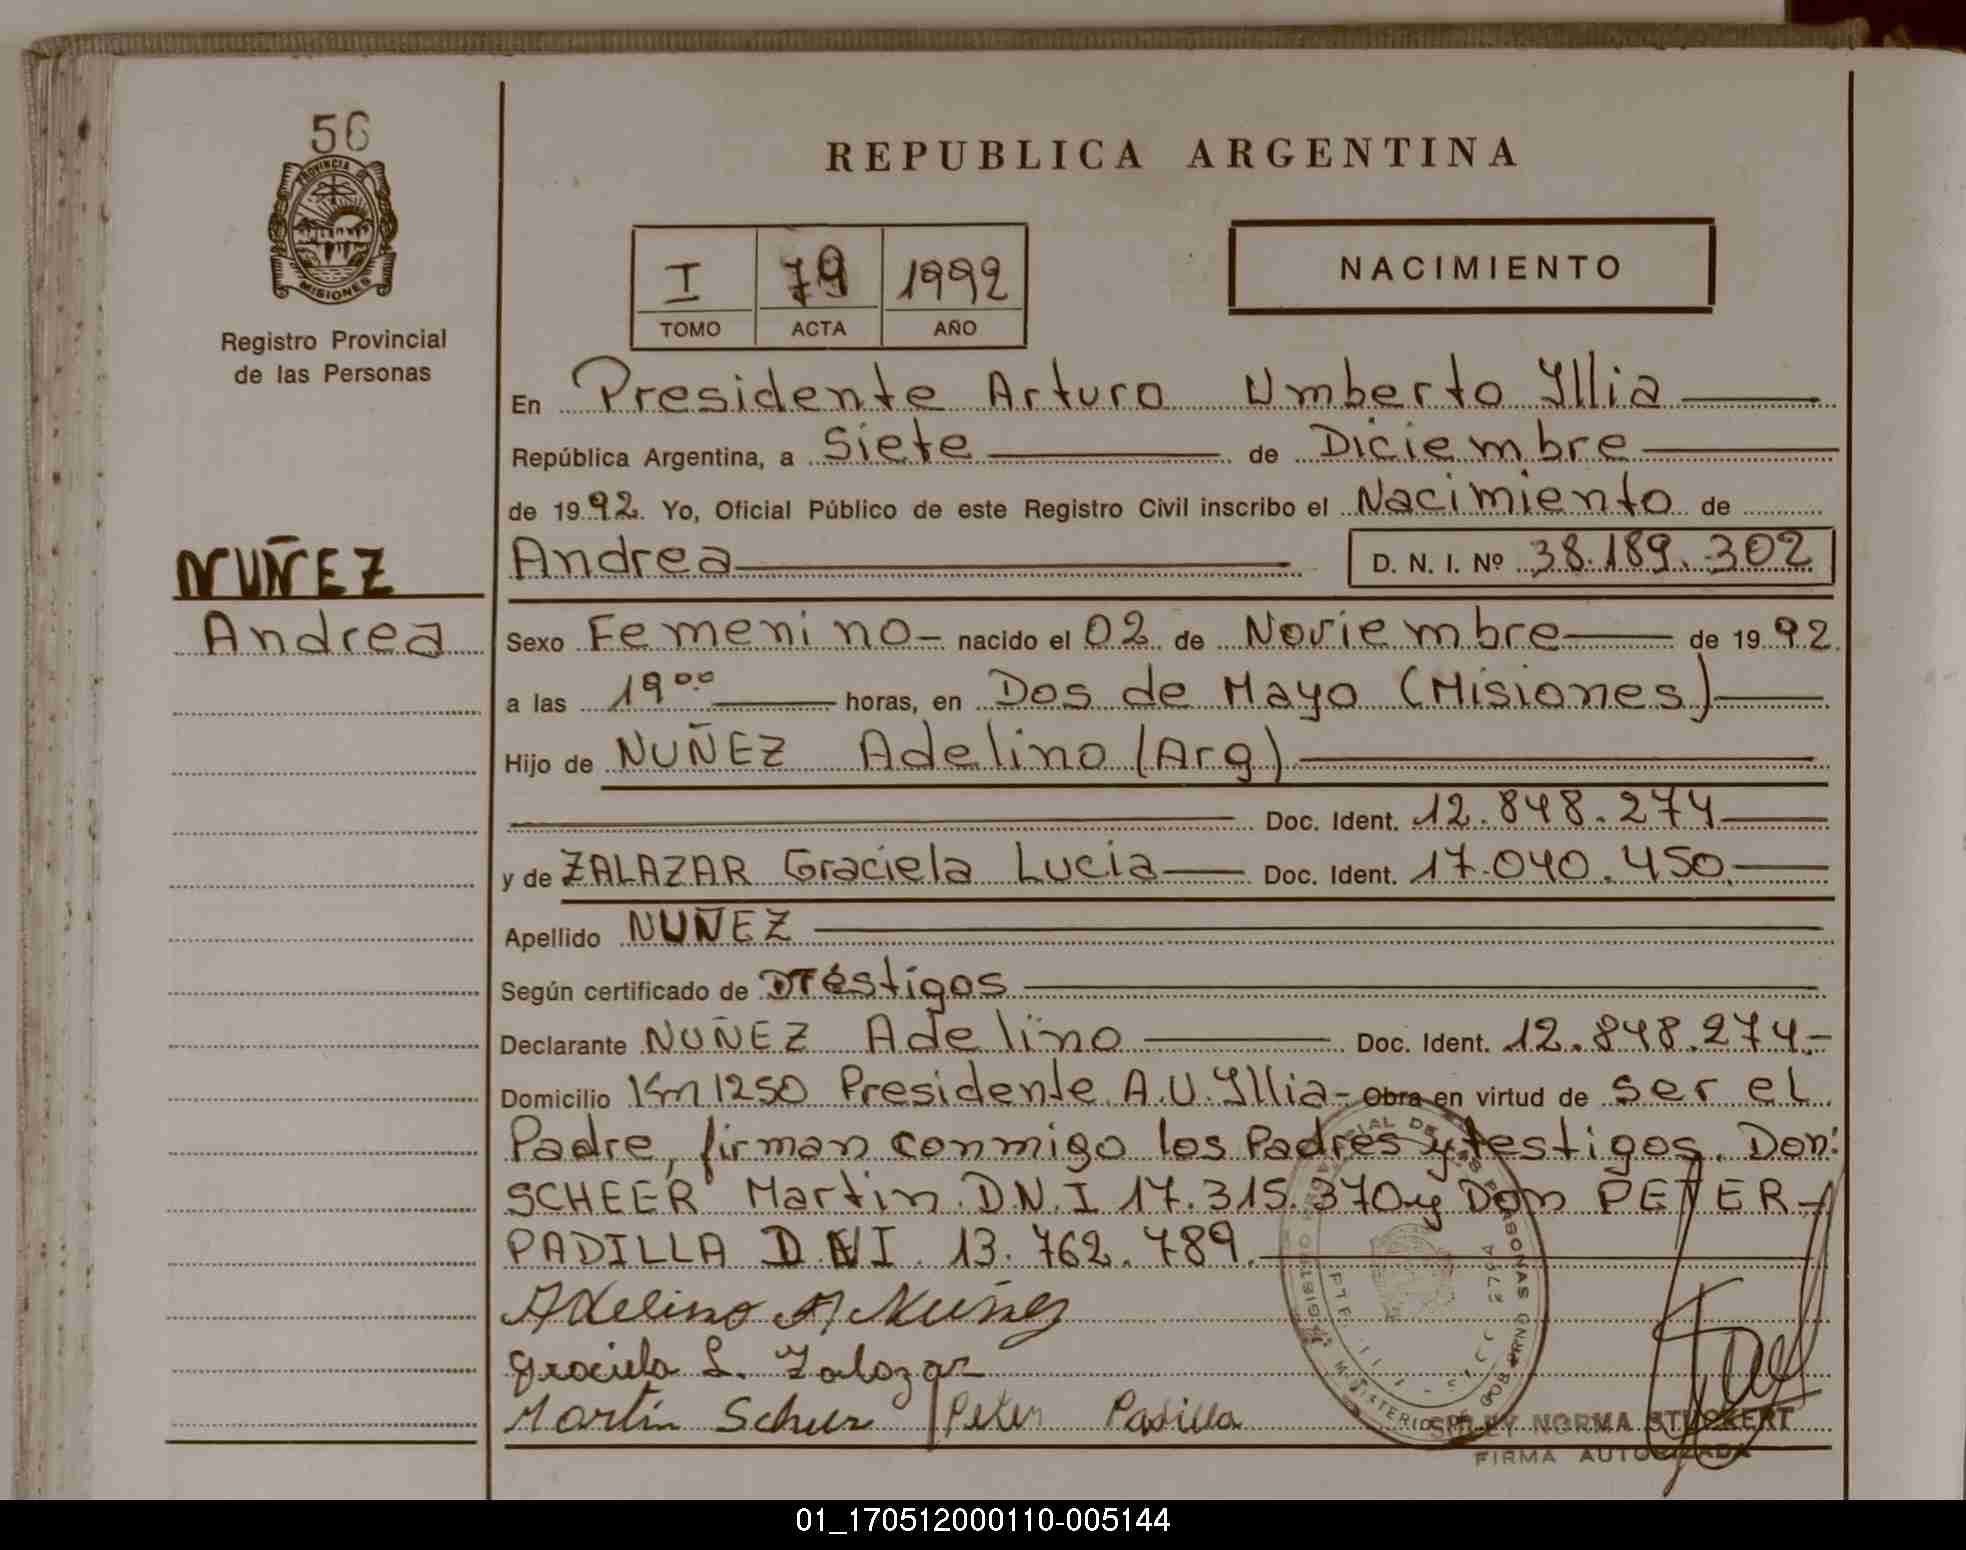 56
PROVINCIA DE
MISIONES
Registro Provincial
de las Personas
NUÑEZ
Andrea
REPUBLICA ARGENTINA
I 79 1992
TOMO ACTA AÑO
NACIMIENTO
En Presidente Arturo Umberto Illia
República Argentina, a Siete de Diciembre
de 1992. Yo, Oficial Público de este Registro Civil inscribo el Nacimiento de
Andrea D. N. I. Nº 38.189.302
Sexo Femenino - nacido el 02 de Noviembre de 1992.
a las 19 00 horas, en Dos de Mayo (Misiones)
Hijo de NUÑEZ Adelino (Arg)
Doc. Ident. 12.848.274
y de ZALAZAR Graciela Lucia Doc. Ident. 17.040.450
Apellido NUÑEZ
Según certificado de Testigos
Declarante NUÑEZ Adelino Doc. Ident. 12.848.274.-
Domicilio Km 1250 Presidente A.U. Illia - Obra en virtud de ser el
Padre, firman conmigo los Padres y testigos. Don:
SCHEER Martin D.N.I 17.315.370 y Don PETER -
PADILLA D.N.I. 13.762.789.
Adelino A Nuñez
Graciela L. Zalazar
Martin Scheer / Peter Padilla
NORMA STOCKERT
FIRMA AUTORIZADA
01_170512000110-005144